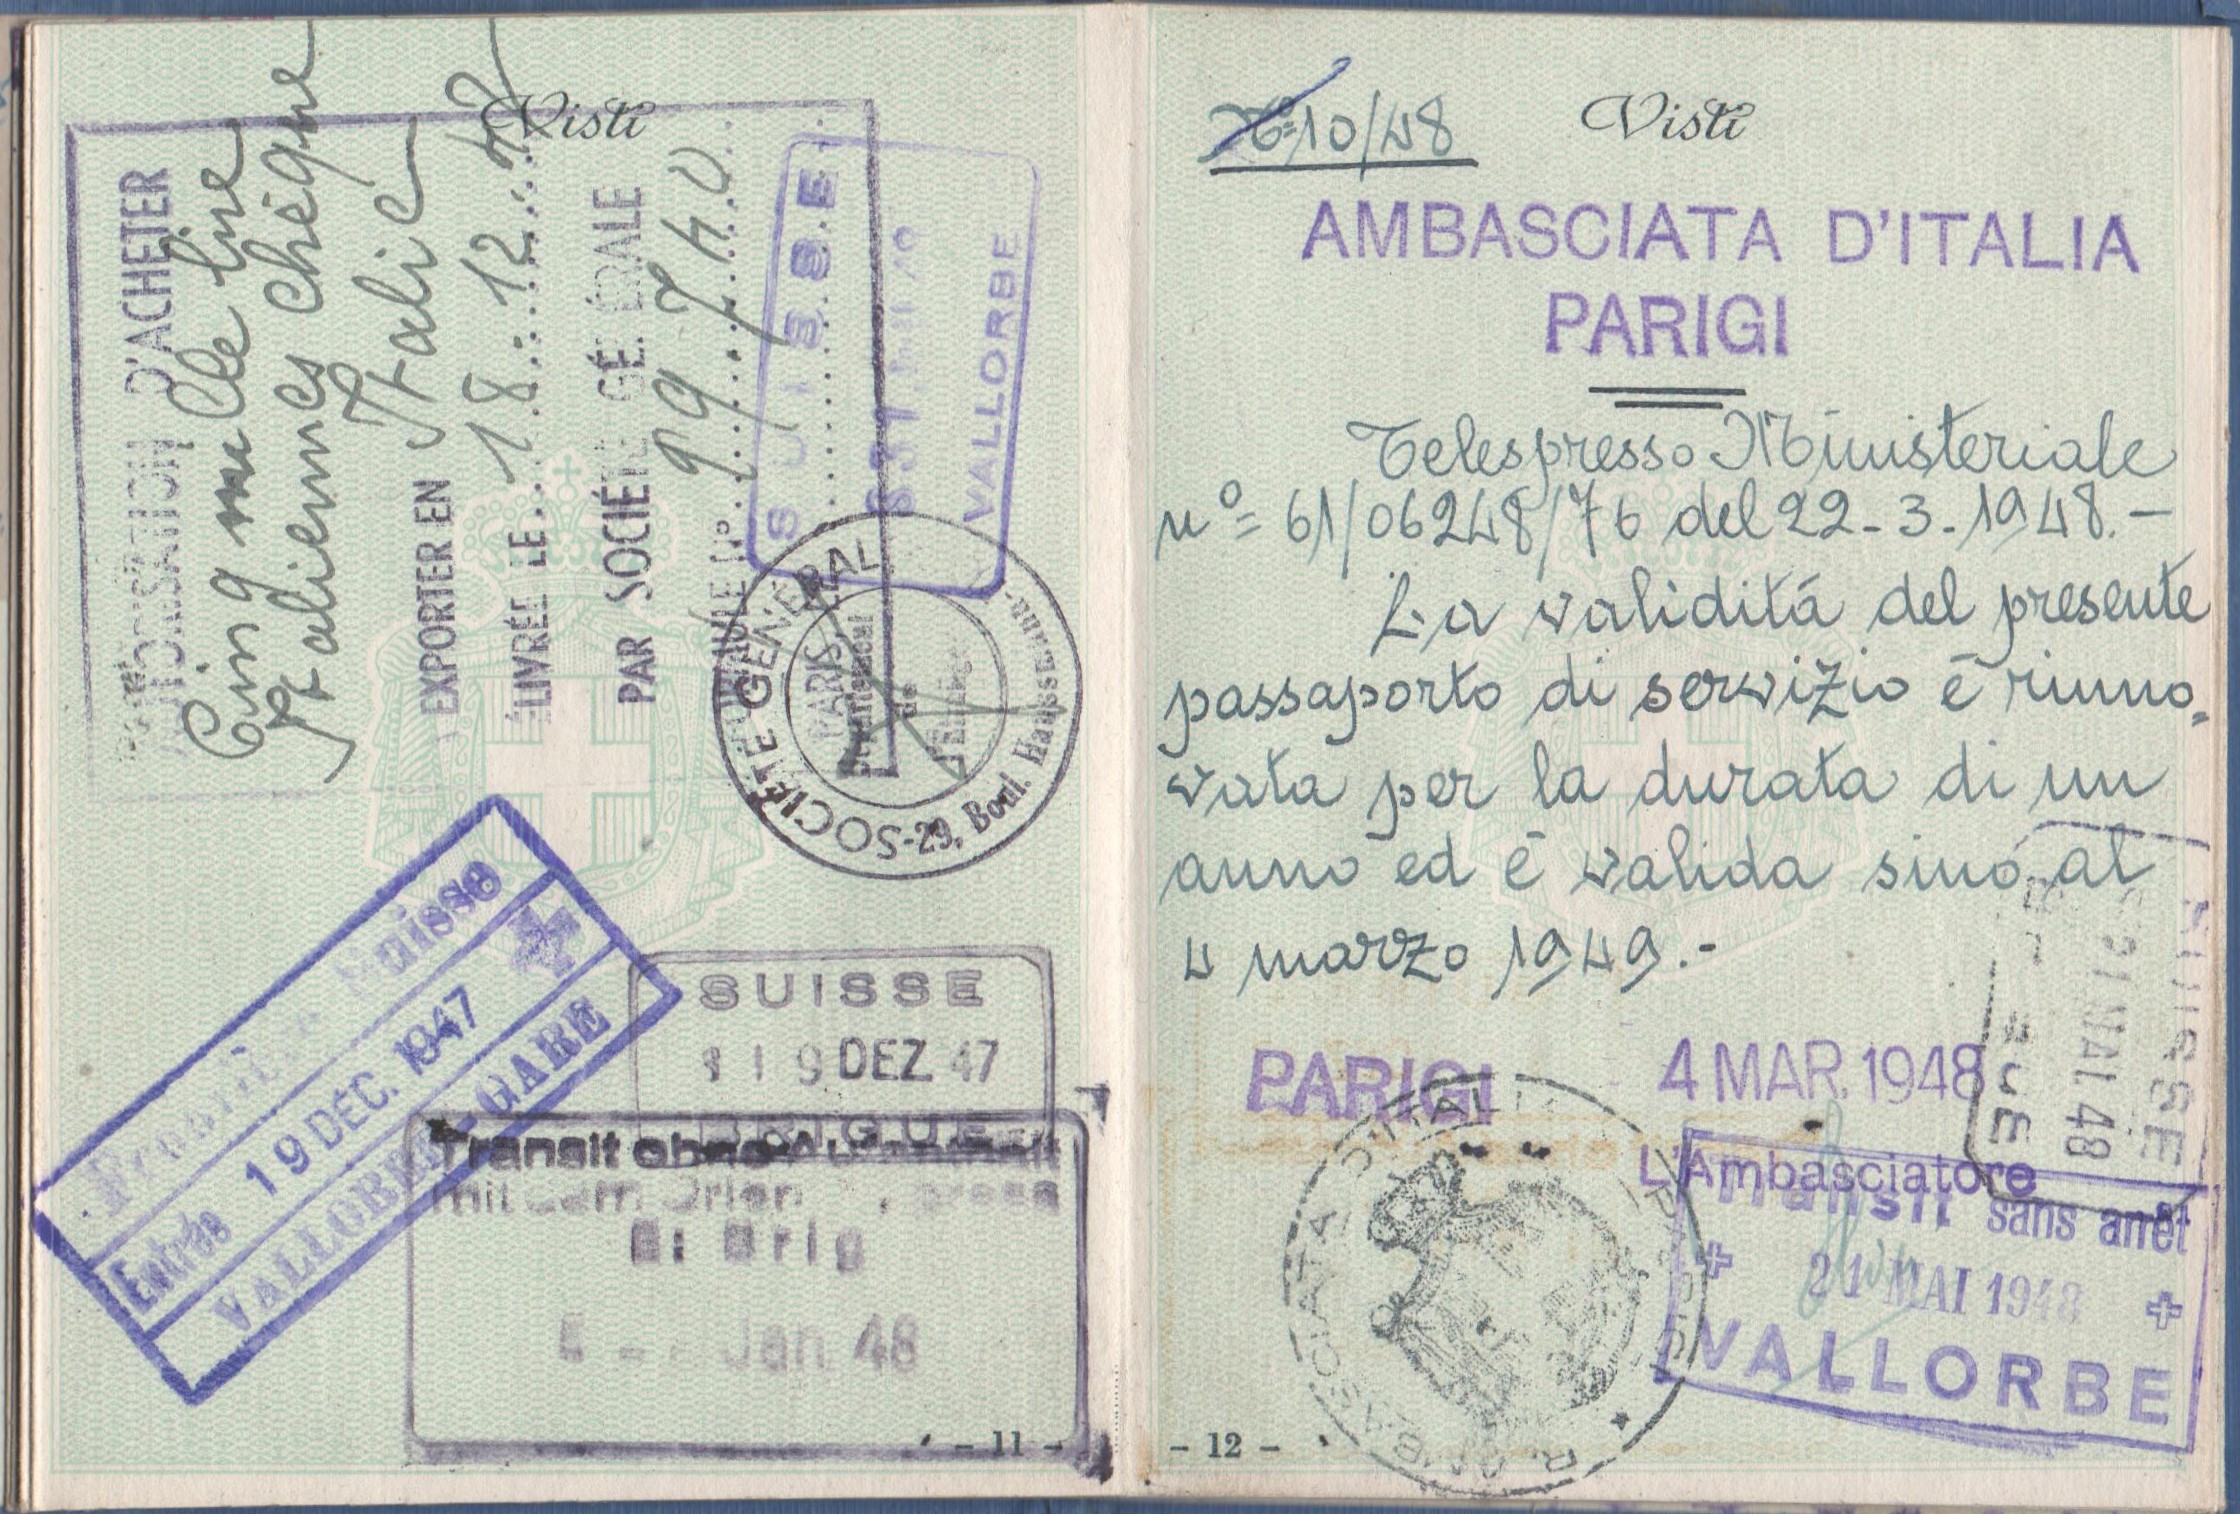 Visti
AUTORISATION D'ACHETER
Cinq mille lire
Italiennes chèque
EXPORTER EN Italie
LIVRÉE LE 18.12.47
PAR SOCIÉTÉ GÉNÉRALE
99.740
SUISSE
VALLORBE
SOCIÉTÉ GÉNÉRALE
PARIS
de
-29, Boul. Haussmann-
Suisse
Entrée 19 DÉC. 1947
VALLORBE-GARE
SUISSE
19 DEZ 47
BRIGUE
Transit ohne Aufenthalt
mit dem Orient Express
Brig
Jan. 48
- 11 -
Nº 10/48
Visti
AMBASCIATA D'ITALIA
PARIGI
Telespresso Ministeriale
nº= 61/06248/76 del 22-3-1948.-
La validità del presente
passaporto di servizio è rinno-
vata per la durata di un
anno ed è valida sino al
4 marzo 1949.-
PARIGI 4 MAR. 1948
L'Ambasciatore
R. AMBASCIATA D'ITALIA
SUISSE
21 MAI 48
Transit sans arrêt
21 MAI 1948
VALLORBE
- 12 -